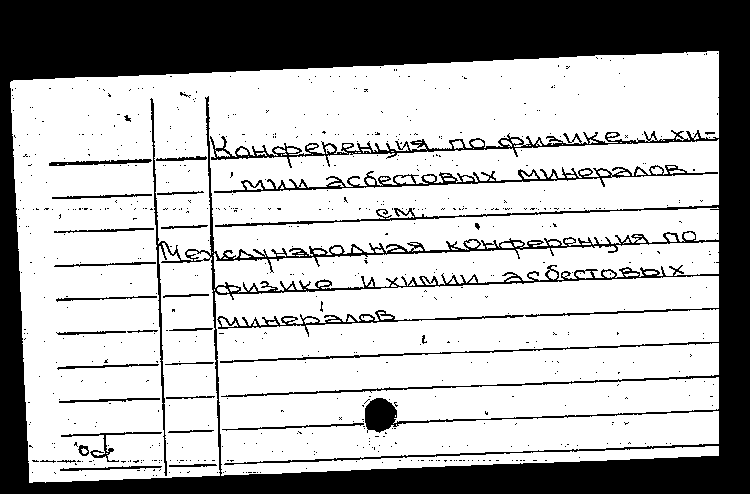 Конференция по физике и хи-
мии асбестовых минералов.
см.
Международная конференция по
физике и химии асбестовых
минералов